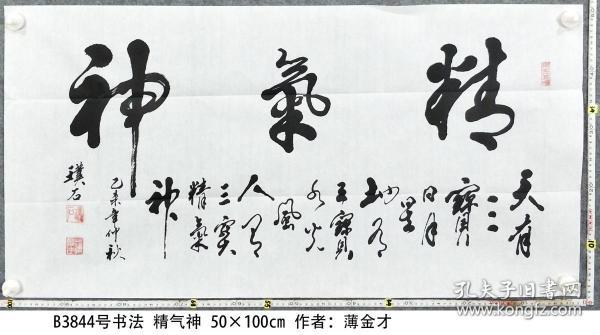 精氣神
天有
三寶
日月
星
地有
三寶
水火
風
人有
三寶
精氣
神
乙未年仲秋
璞石
孔夫子旧书网
B3844号书法 精气神 50×100cm 作者：薄金才